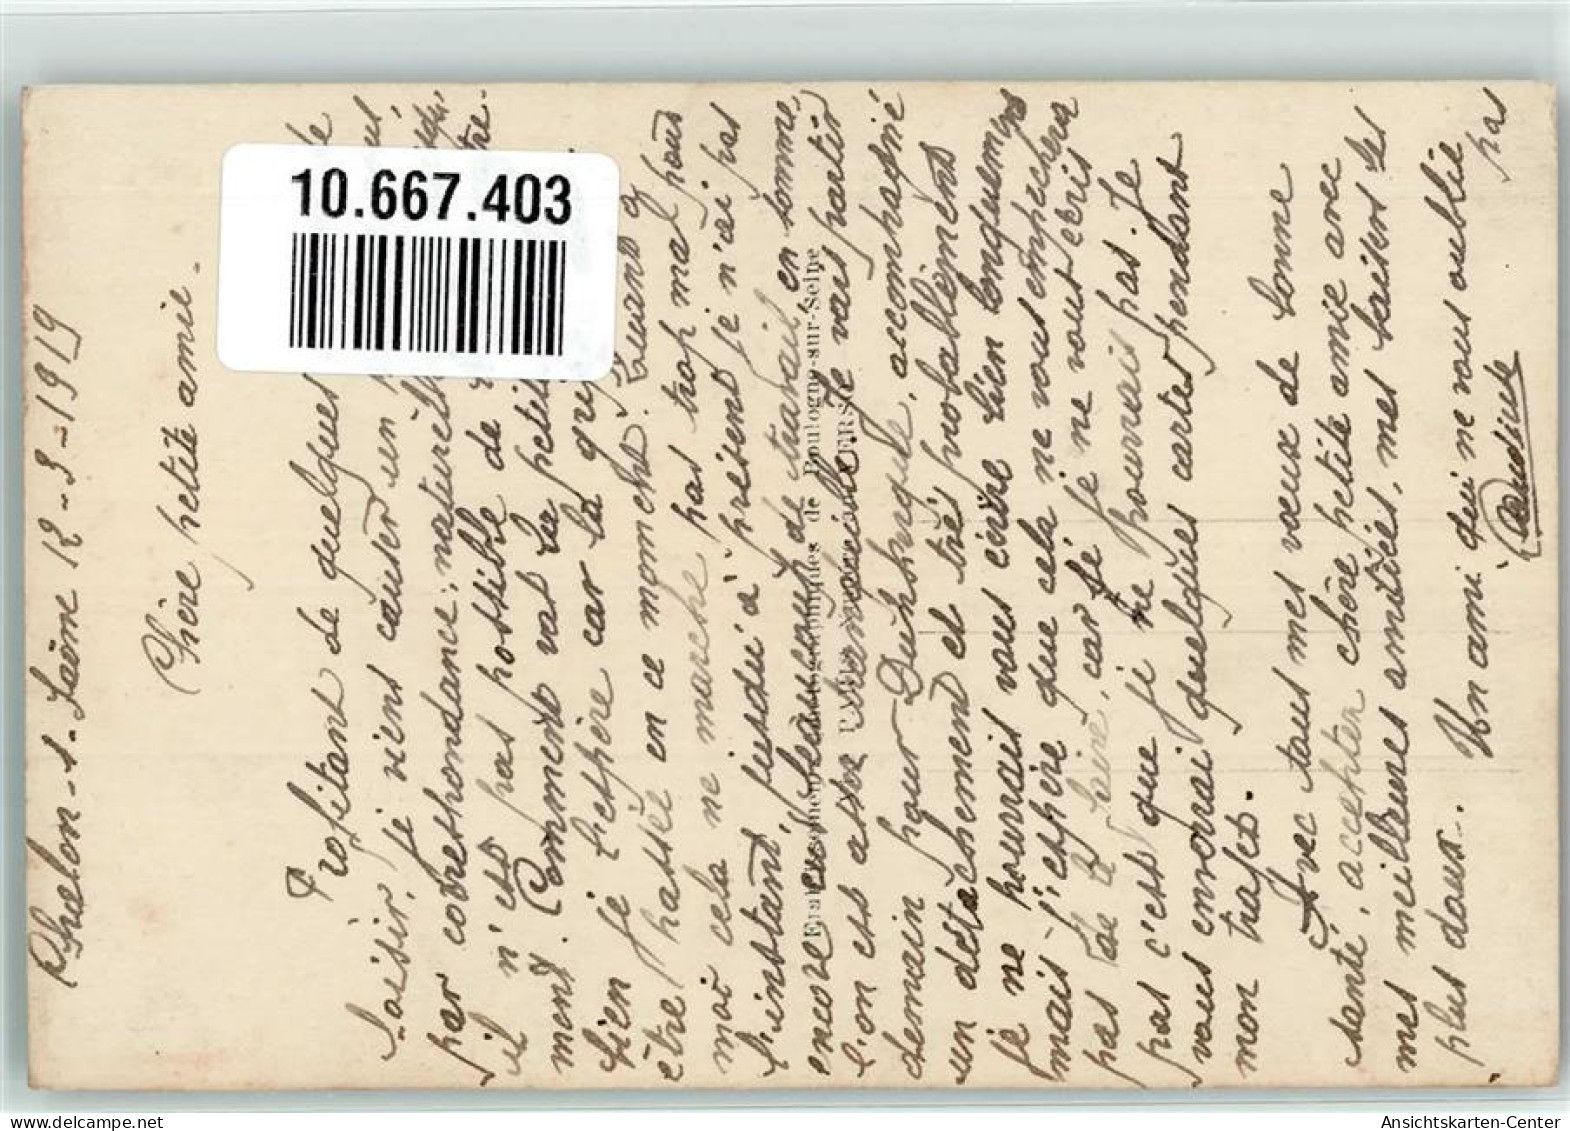 Chalon-s-Saône 12-3-1919
Chère petite amie.
Profitant de quelques de
loisir, je viens causer un
par correspondance; naturell
il n'est pas possible de tre.
ment. Comment vas la petite
bien je l'espère car la gri
être passée en ce moment. Quand à
moi cela ne marche pas trop mal pour
l'instant, jusqu'à présent je n'ai pas
encore eu beaucoup de travail, en somme,
l'on est assez tranquille. Je vais partir
demain pour Dunkerque, accompagné
un détachement et très probablement
je ne pourrais vous écrire bien longuement
mais j'espère que cela ne vous empêchera
pas de le faire, car si je ne vout écris
pas c'est que je ne pourrais pas. Je
vous enverrai quelques cartes pendant
mon trajet.
Avec tous mes vœux de bonne
santé, accepter chère petite amie avec
mes meilleures amitiés, mes baisers les
plus doux. Un ami qui ne vous oublie
pas
10.667.403
Etablissements Photographiques de Boulogne-sur-Seine
Ansichtskarten-Center